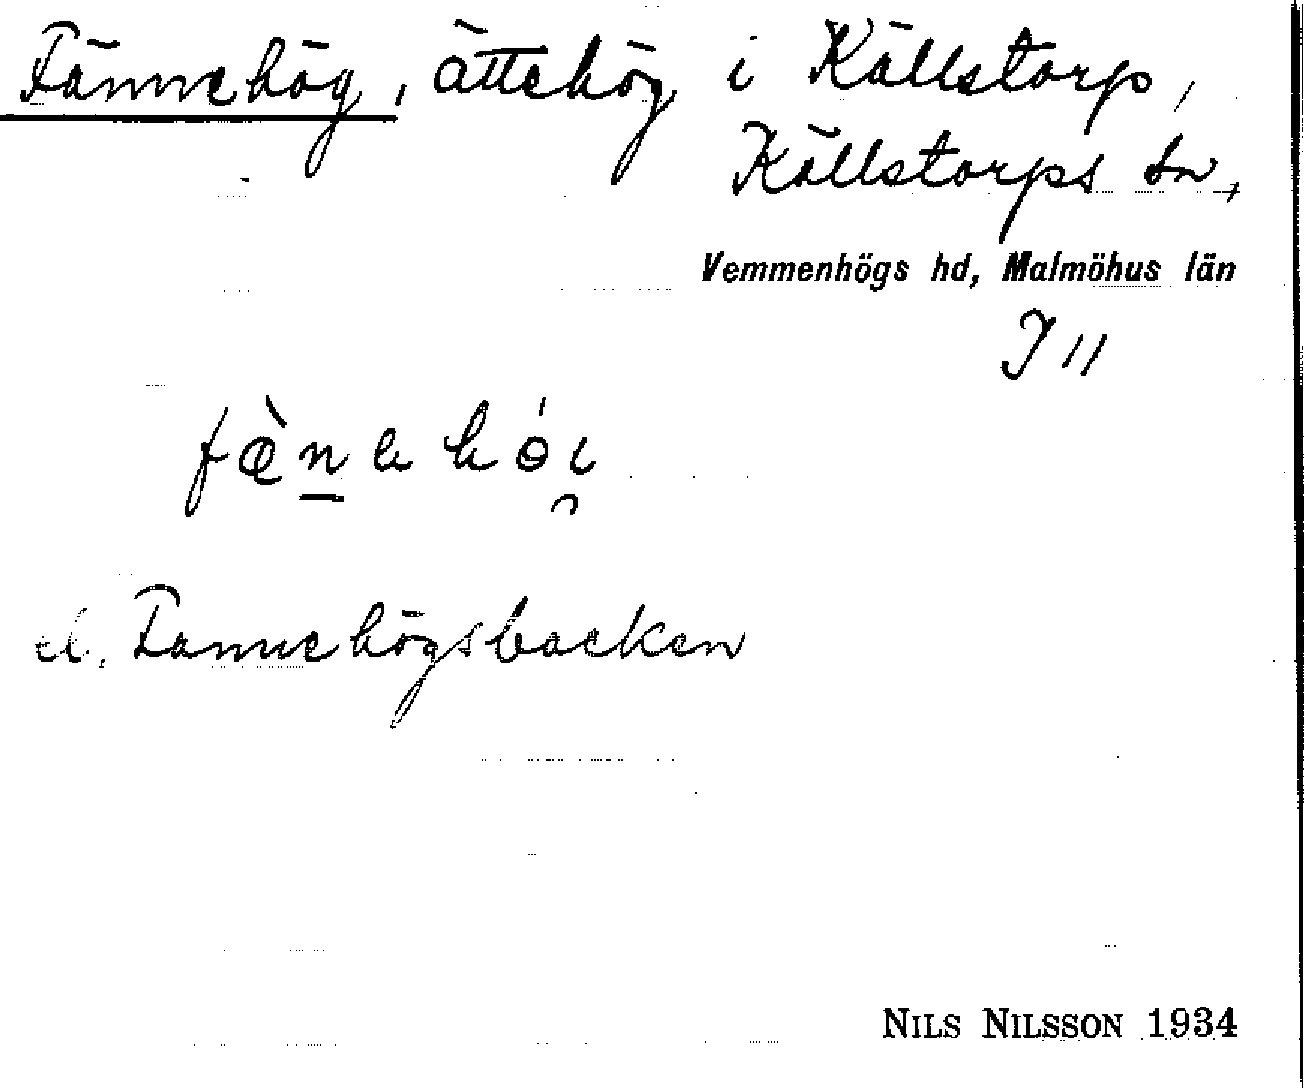 Fännehög, ättehög i Källstorp,
Källstorps sn,
Vemmenhögs hd, Malmöhus län
J 11
el. Fannehögsbacken
NILS NILSSON 1934